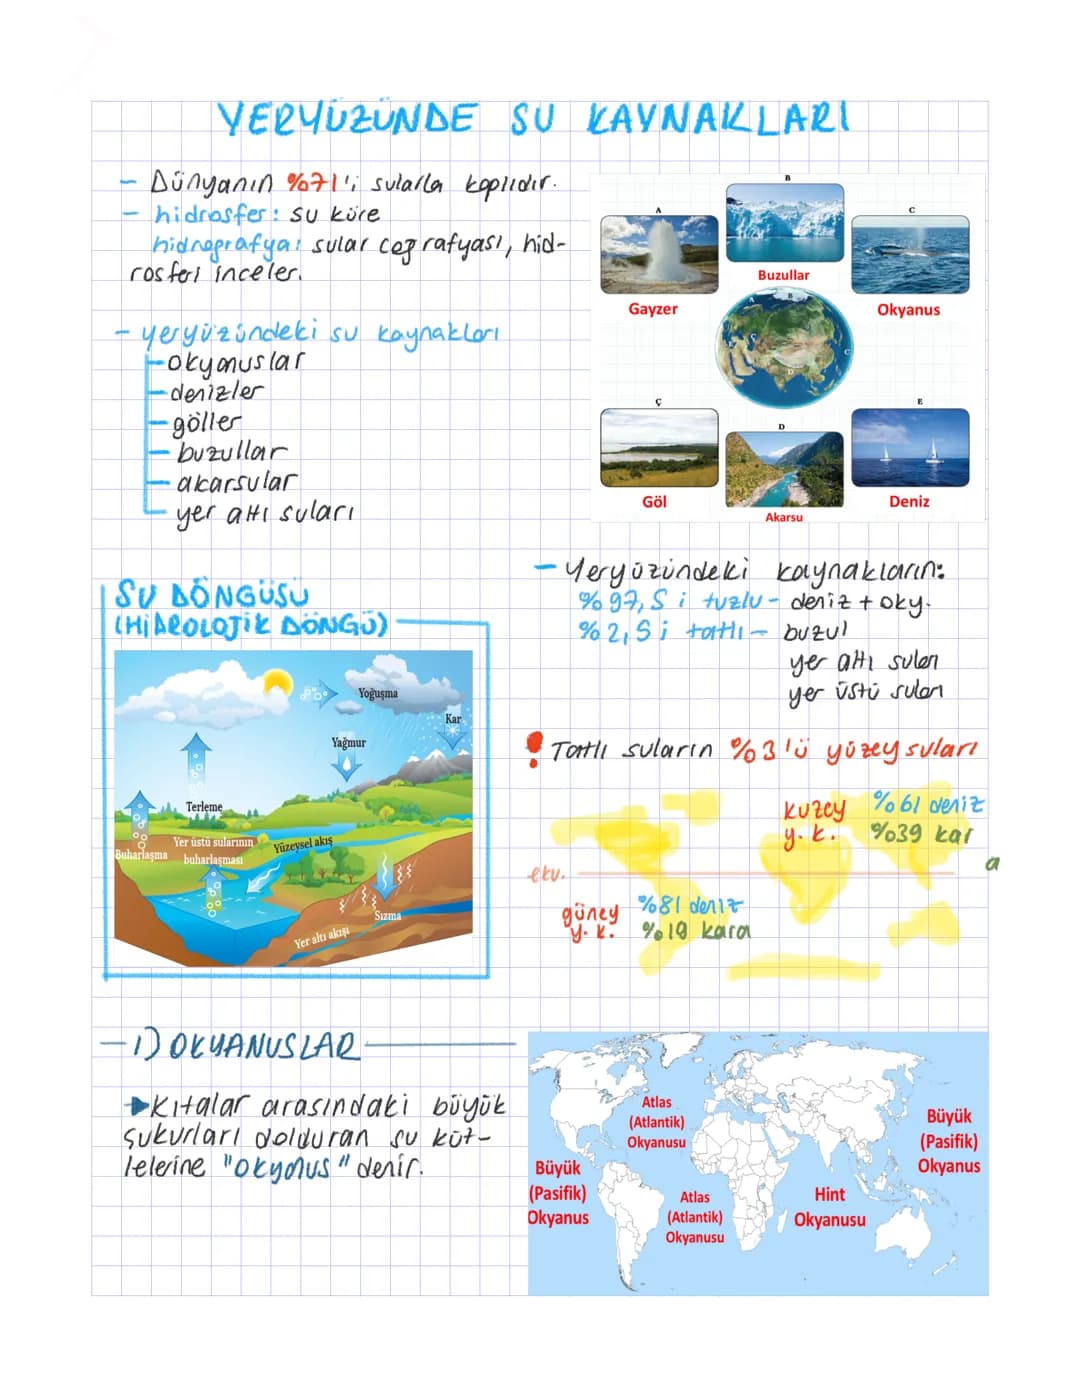 YERYÜZÜNDE SU KAYNAKLARI
- Dünyanın %71'i sularla kaplıdır.
- hidrosfer: su küre
hidrografya: sular coğrafyası, hid-
rosferi inceler.
- yeryüzündeki su kaynakları
- okyanuslar
- denizler
- göller
- buzullar
- akarsular
yer altı suları
A
Gayzer
B
Buzullar
C
Okyanus
A
B
C
Ç
D
Ç
Göl
D
Akarsu
E
Deniz
SU DÖNGÜSÜ
(HİDROLOJİK DÖNGÜ)
Yoğuşma
Kar
Yağmur
Terleme
Buharlaşma
Yer üstü sularının
buharlaşması
Yüzeysel akış
Sızma
Yer altı akışı
- Yeryüzündeki kaynakların:
%97,5 i tuzlu - deniz + oky.
%2,5 i tatlı - buzul
yer altı suları
yer üstü suları
! Tatlı suların %3'ü yüzey suları
kuzey %61 deniz
y.k. %39 kar
a
ekv.
güney %81 deniz
y.k. %19 kara
- 1) OKYANUSLAR
Kıtalar arasındaki büyük
çukurları dolduran su küt-
lelerine "okyanus" denir.
Atlas
(Atlantik)
Okyanusu
Büyük
(Pasifik)
Okyanus
Büyük
(Pasifik)
Okyanus
Atlas
(Atlantik)
Okyanusu
Hint
Okyanusu